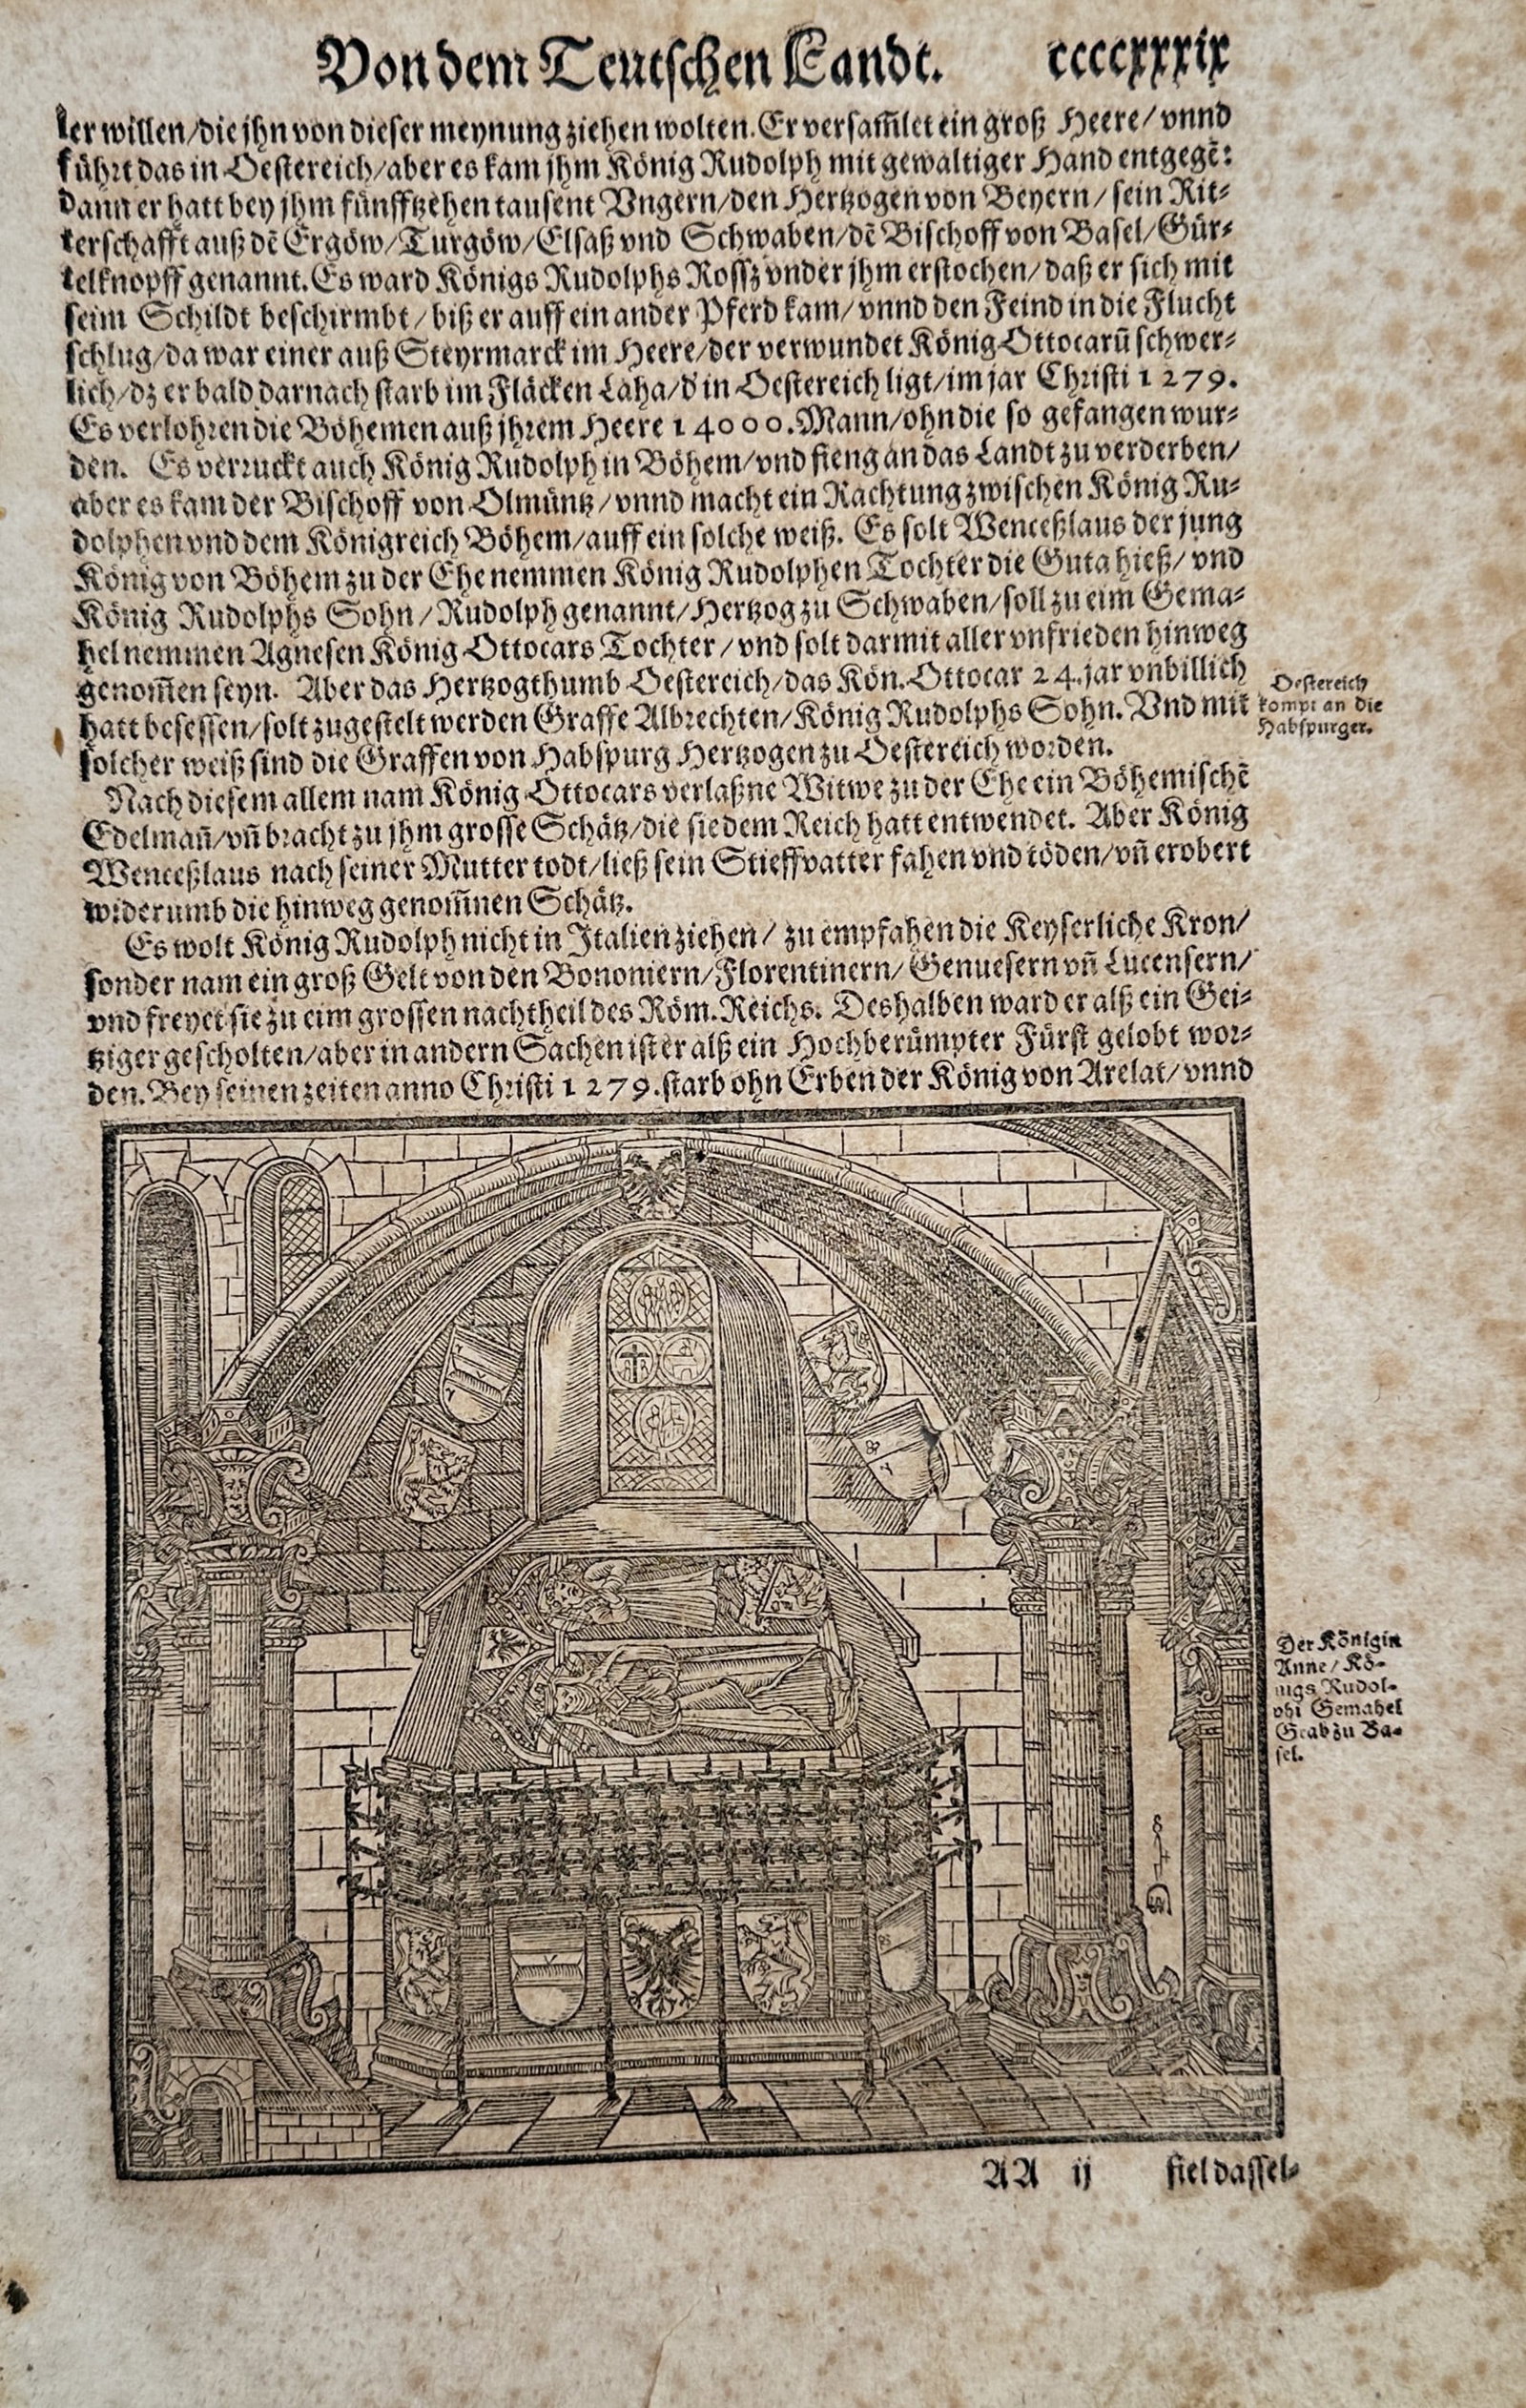 Von dem Teutschen Landt. ccccxxxix
ter willen/die jhn von dieser meynung ziehen wolten. Er versam̃let ein groß Heere/vnnd
führt das in Oestereich/aber es kam jhm König Rudolph mit gewaltiger Hand entgegẽ:
dann er hatt bey jhm fünfftzehen tausent Vngern/den Hertzogen von Beyern/sein Rit-
terschafft auß dẽ Ergöw/Turgöw/Elsaß vnd Schwaben/dẽ Bischoff von Basel/Gür-
telknopff genannt. Es ward Königs Rudolphs Rossz vnder jhm erstochen/daß er sich mit
seim Schildt beschirmbt/biß er auff ein ander Pferd kam/vnnd den Feind in die Flucht
schlug/da war einer auß Steyrmarck im Heere/der verwundet König Ottocarũ schwer-
lich/dz er bald darnach starb im Fläcken Laha/d' in Oestereich ligt/im jar Christi 1279.
Es verlohren die Böhemen auß jhrem Heere 14000. Mann/ohn die so gefangen wur-
den. Es verruckt auch König Rudolph in Böhem/vnd fieng an das Landt zu verderben/
aber es kam der Bischoff von Olmüntz/vnnd macht ein Rachtung zwischen König Ru-
dolphen vnd dem Königreich Böhem/auff ein solche weiß. Es solt Wenceßlaus der jung
König von Böhem zu der Ehe nemmen König Rudolphen Tochter die Guta hieß/vnd
König Rudolphs Sohn/Rudolph genannt/Hertzog zu Schwaben/soll zu eim Gema-
hel nemmen Agnesen König Ottocars Tochter/vnd solt darmit aller vnfrieden hinweg
genom̃en seyn. Aber das Hertzogthumb Oestereich/das Kön. Ottocar 24. jar vnbillich
hatt besessen/solt zugestelt werden Graffe Albrechten/König Rudolphs Sohn. Vnd mit
solcher weiß sind die Graffen von Habspurg Hertzogen zu Oestereich worden.
Oestereich
kompt an die
Habspurger.
Nach diesem allem nam König Ottocars verlaßne Witwe zu der Ehe ein Böhemischẽ
Edelmañ/vñ bracht zu jhm grosse Schätz/die sie dem Reich hatt entwendet. Aber König
Wenceßlaus nach seiner Mutter todt/ließ sein Stieffvatter fahen vnd töden/vñ erobert
widerumb die hinweg genom̃nen Schätz.
Es wolt König Rudolph nicht in Italien ziehen/zu empfahen die Keyserliche Kron/
sonder nam ein groß Gelt von den Bononiern/Florentinern/Genuesern vñ Lucensern/
vnd freyet sie zu eim grossen nachtheil des Röm. Reichs. Deshalben ward er alß ein Gei-
tziger gescholten/aber in andern Sachen ist er alß ein Hochberümpter Fürst gelobt wor-
den. Bey seinen zeiten anno Christi 1279. starb ohn Erben der König von Arelat/vnnd
Der Königin
Anne/Kö-
nigs Rudol-
phi Gemahel
Grab zu Ba-
sel.
AA ij fiel dassel-